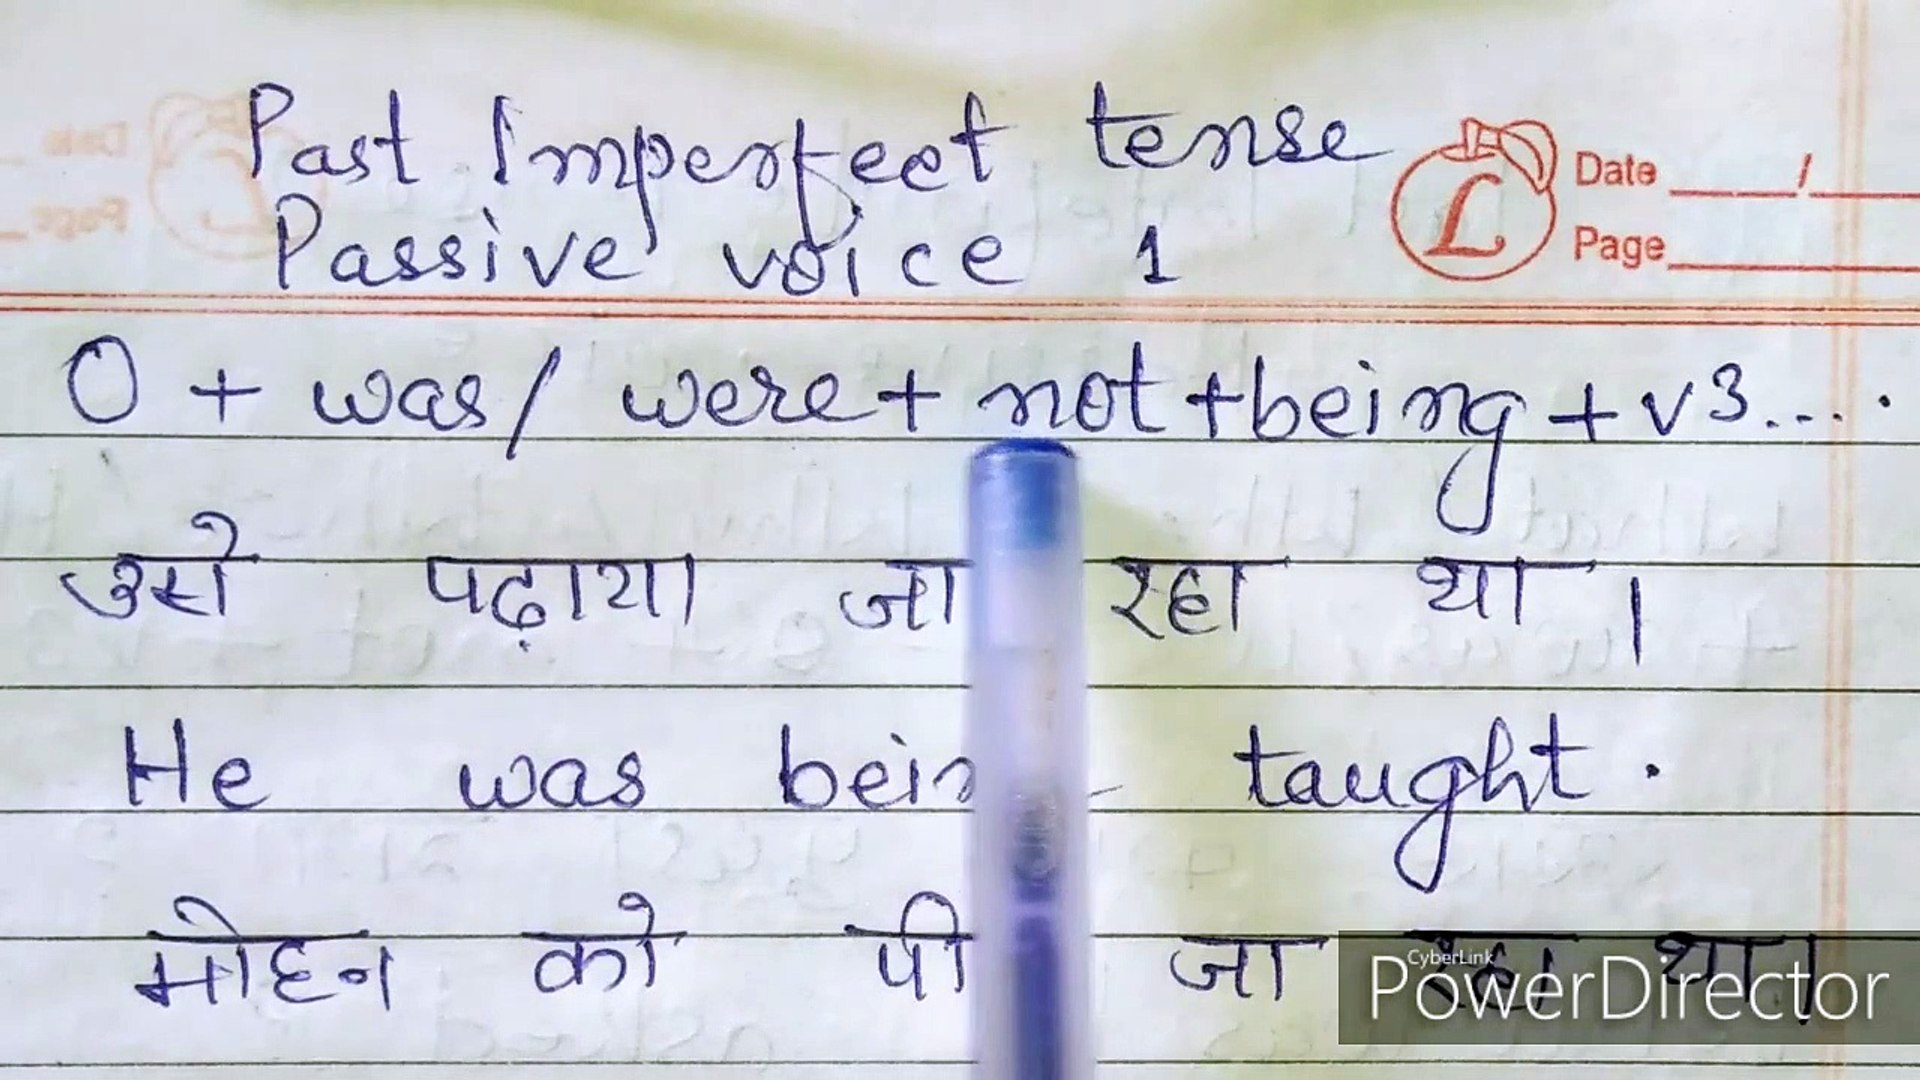 Past Imperfect tense
Passive voice 1
Date /
Page
L
O + was/ were + not + being + v3....
उसे पढ़ाया जा रहा था।
He was bein taught.
मोहन को पी जा रहा था।
CyberLink
PowerDirector